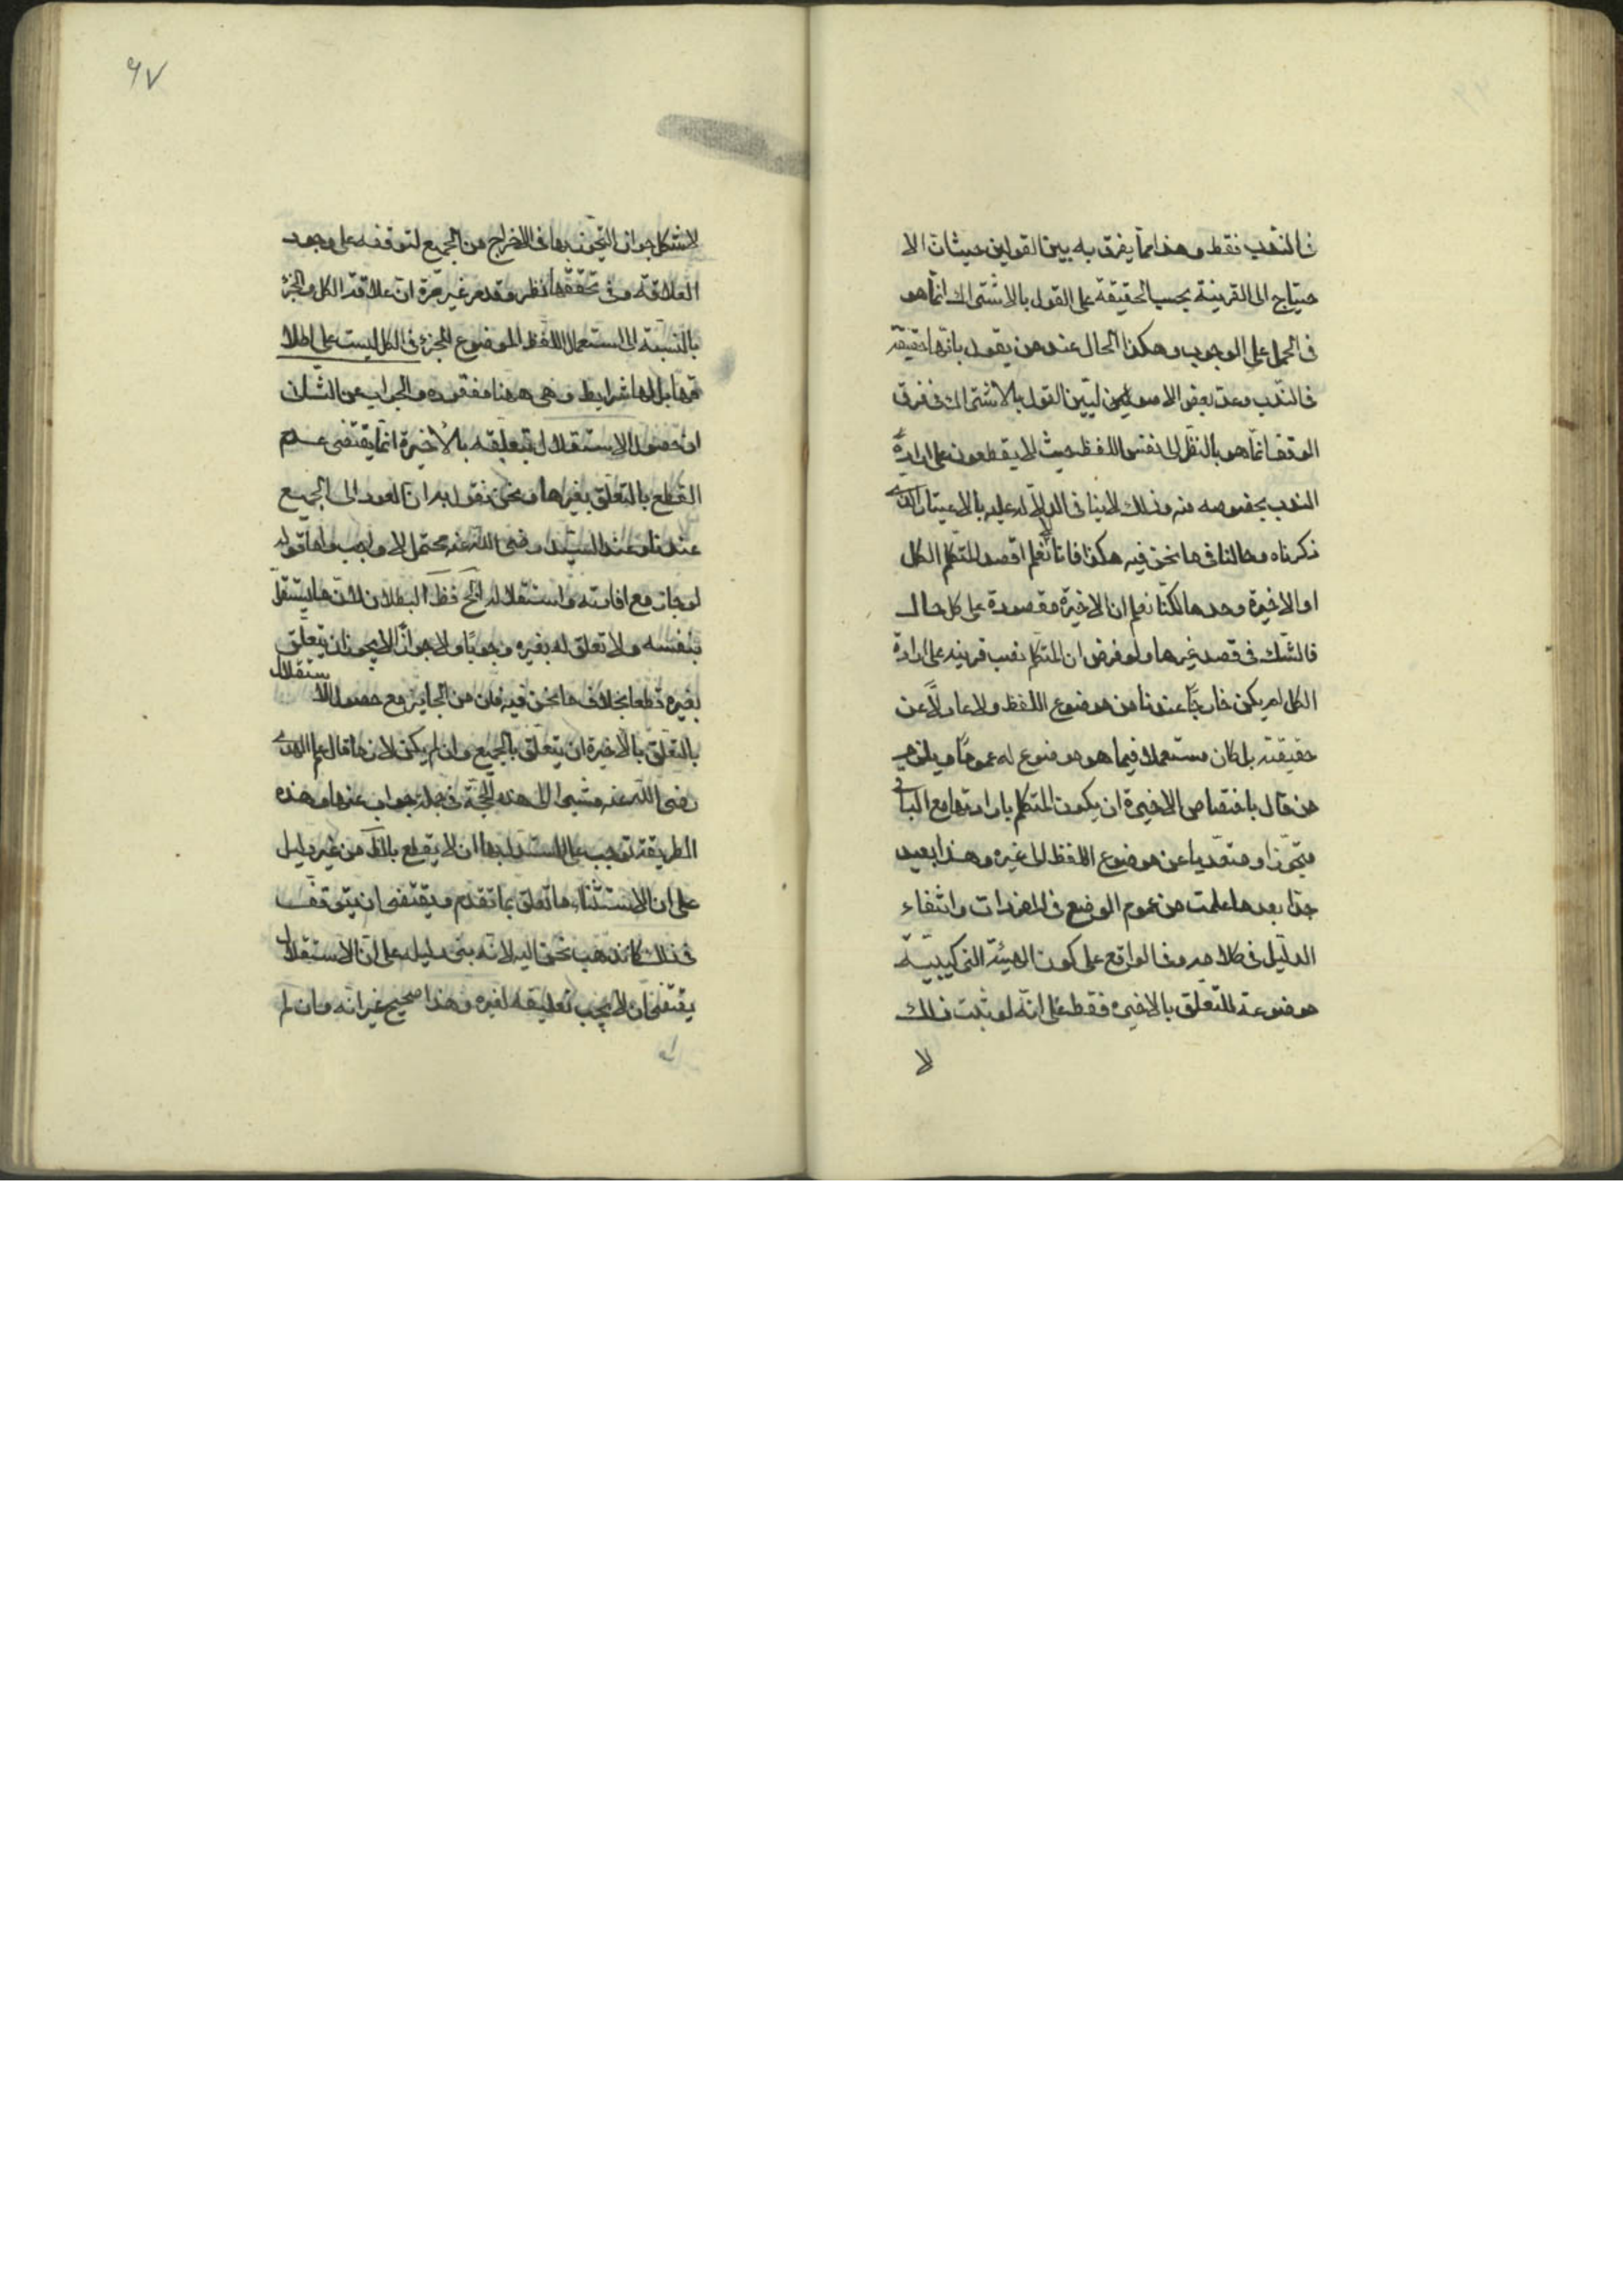 في الندب فقط وهذا مما يفرق به بين القولين حيث ان الا
حتياج الى القرينة بحسب الحقيقة على القول بالاشتراك انما هو
في الحمل على الوجوب وهكذا الحال عند من يقول بانها حقيقة
في الندب وعند بعض الاصوليين ليبين القول بالاشتراك في فرق
الوقف انما هو بالنظر الى نفس اللفظ حيث لا يقطعون على ارادة
الندب بخصوصه منه وذلك لا ينافي الدلالة عليه بالاعتبار الذي
ذكرناه وحالنا في ما نحن فيه هكذا فانا لا نعلم اقصد المتكلم الكل
او الاخيرة وحدها لكنا نعلم ان الاخيرة مقصودة على كل حال
فالشك في قصد غيرها ولو فرض ان المتكلم نصب قرينه على ارادة
الكل لم يكن خارجًا عندنا من موضوع اللفظ ولا عادلًا عن
حقيقته بل كان مستعملا فيما هو موضوع له عمومًا ويلزم
من قال باختصاص الاخيرة ان يكون المتكلم بارادتها مع الباقي
متجوزا ومتعديا عن موضوع اللفظ الى غيره وهذا بعيد
جدا بعد ما علمت من عموم الوضع في المفردات وانتفاء
الدليل في كلامهم وفي الواقع على كون الهيئة التركيبية
موضوعة للتعلق بالاخيره فقط على انه لو ثبت ذلك
لا
٦٧
لاشكل جواز التجوز بها في الاخراج من الجميع لتوقفه على وجود
العلاقة وفي تحققها نظر وقد مر غير مرة ان علاقة الكل والجزء
بالنسبة الى استعمال اللفظ الموضوع للجزء في الكل ليست على اطلا
قها بل لها شرايط وهي ههنا مفقوده والجواب عن الثالث
ان حصول الاستقلال بتعليقه بالاخيرة انما يقتضى عدم
القطع بالتعلق بغيرها ونحن نقول به ان العود الى الجميع
عندنا وعند السيد رضى الله عنه محتمل لا واجب واما قوله
لو جاز مع افادته واستقلاله الخ فظ البطلان لان ما يستقل
بنفسه ولا تعلق له بغيره وجوبًا ولا جوازًا لا يجوز ان يتعلق
بغيره قطعا بخلاف ما نحن فيه فان من الجايز مع حصول الاستقلال
بالتعلق بالاخيرة ان يتعلق بالجميع وان لم يكن لازما قال علم الهدى
رضى الله عنه مشيرا الى هذه الحجة في جملة جواب عنها وهذه
الطريقة توجب على المستدل بها ان لا يقطع بالظ من غير دليل
على ان الاستثناء ما تعلق بما تقدم ويقتضى ان يتوقف
في ذلك كما نذهب نحن اليه لانه بنى دليله على ان الاستقلال
يقتضى ان لا يجب تعليقه لغيره وهذا صحيح غير انه وان لم